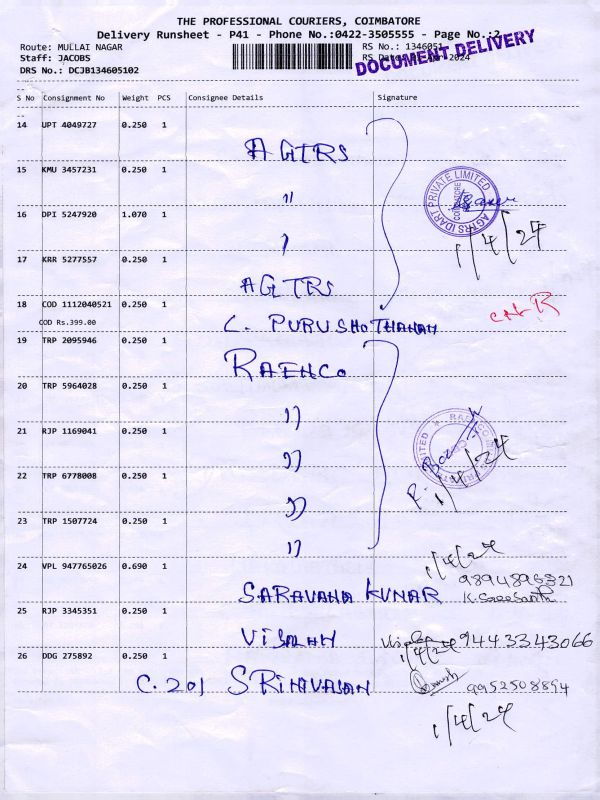 THE PROFESSIONAL COURIERS, COIMBATORE
Delivery Runsheet - P41 - Phone No.:0422-3505555 - Page No.:2
Route: MULLAI NAGAR
RS No.: 1346051
Staff: JACOBS
RS Date: 2024
DRS No.: DCJB134605102
DOCUMENT DELIVERY
S No Consignment No Weight PCS Consignee Details Signature
14 UPT 4049727 0.250 1
AGTRS
15 KMU 3457231 0.250 1
"
AGTRS IDART PRIVATE LIMITED
COIMBATORE
16 DPI 5247920 1.070 1
"
1/4/24
17 KRR 5277557 0.250 1
AGTRS
18 COD 1112040521 0.250 1
COD Rs.399.00
C. PURUSHOTHAMAN
19 TRP 2095946 0.250 1
RAEHCO
20 TRP 5964028 0.250 1
"
21 RJP 1169041 0.250 1
"
22 TRP 6778008 0.250 1
"
1/4/24
23 TRP 1507724 0.250 1
"
24 VPL 947765026 0.690 1
SARAVANA KUMAR
1/4/24
9894896321
25 RJP 3345351 0.250 1
VISALAH
1/4/24
9443343066
26 DDG 275892 0.250 1
C. 201 SRINIVASAN
9952508894
1/4/24